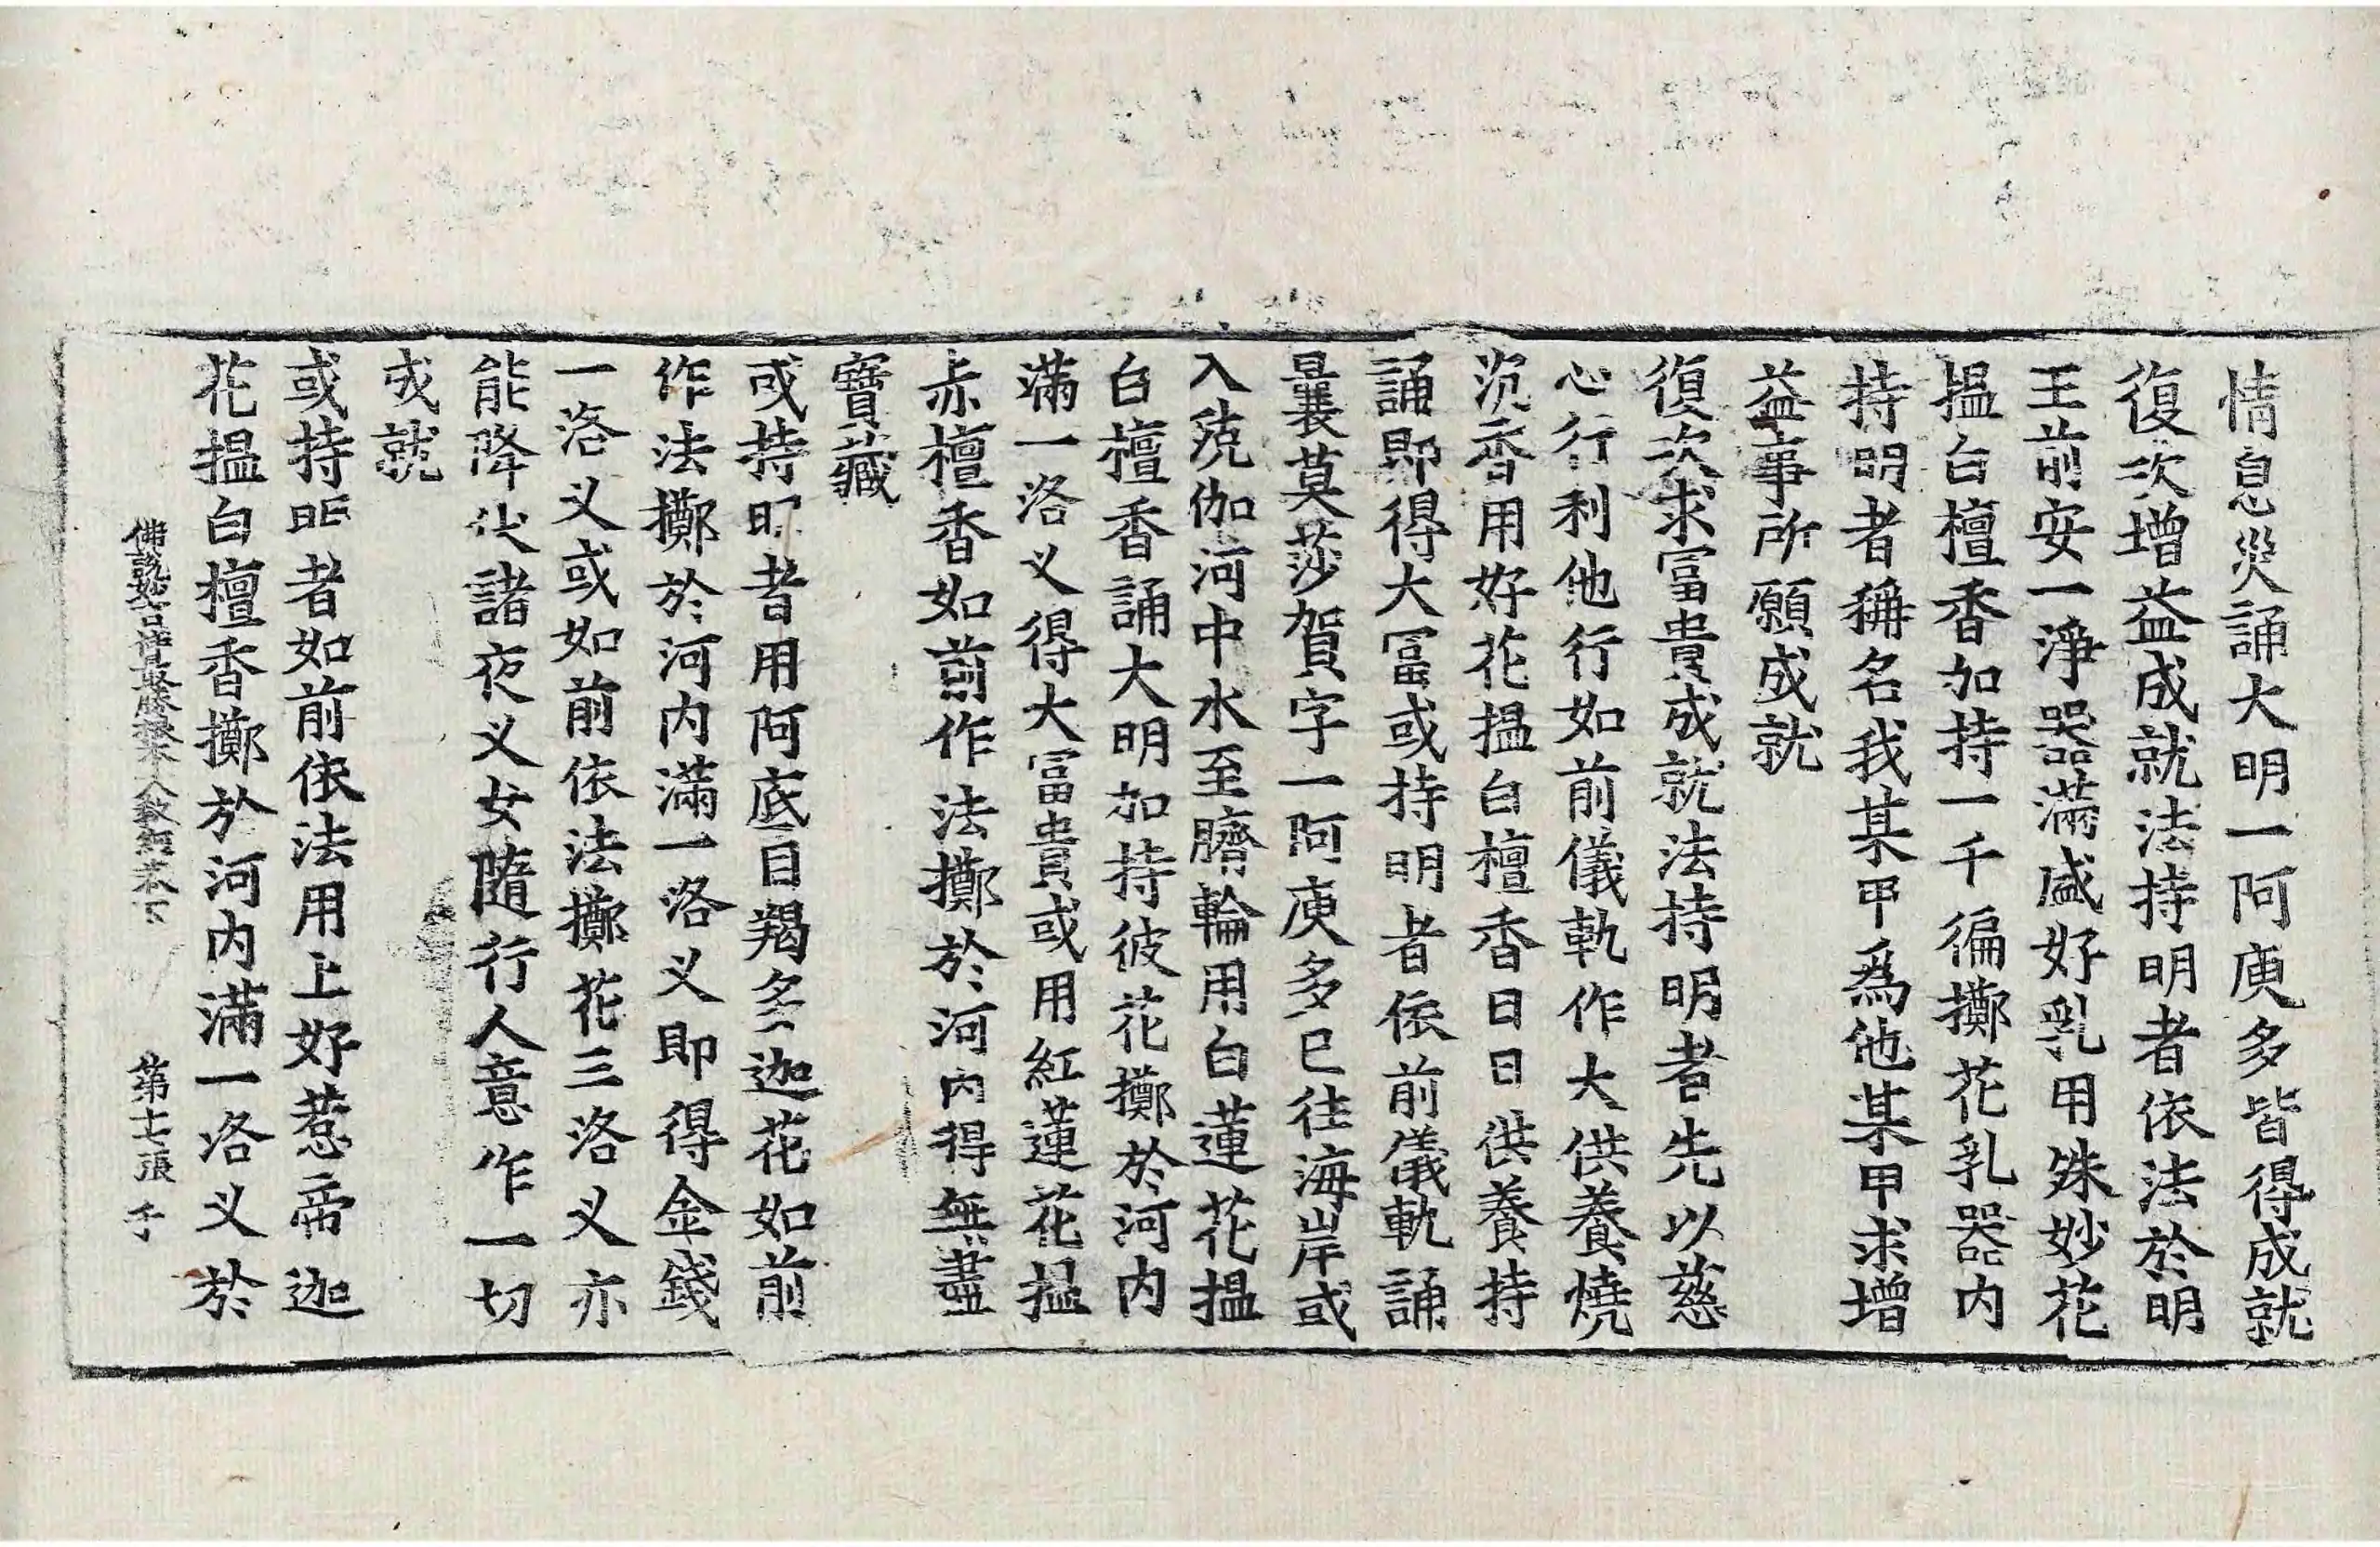 情息災誦大明一阿庾多皆得成就
復次增益成就法持明者依法於明
王前安一淨器滿盛好乳用殊妙花
搵白檀香加持一千徧擲花乳器內
持明者稱名我某甲爲他某甲求增
益事所願成就
復次求冨貴成就法持明者先以慈
心行利他行如前儀軌作大供養燒
沉香用好花搵白檀香日日供養持
誦即得大冨或持明者依前儀軌誦
曩莫莎賀字一阿庾多已往海岸或
入兢伽河中水至臍輪用白蓮花搵
白檀香誦大明加持彼花擲於河內
滿一洛义得大冨貴或用紅蓮花搵
赤檀香如前作法擲於河內得無盡
寶藏
或持明者用阿底目羯多迦花如前
作法擲於河內滿一洛义即得金錢
一洛义或如前依法擲花三洛义亦
能降伏諸夜义女隨行人意作一切
成就
或持明者如前依法用上好惹帝迦
花搵白檀香擲於河內滿一洛义於
佛說妙吉祥最勝根本大教經卷下 第十七張 千